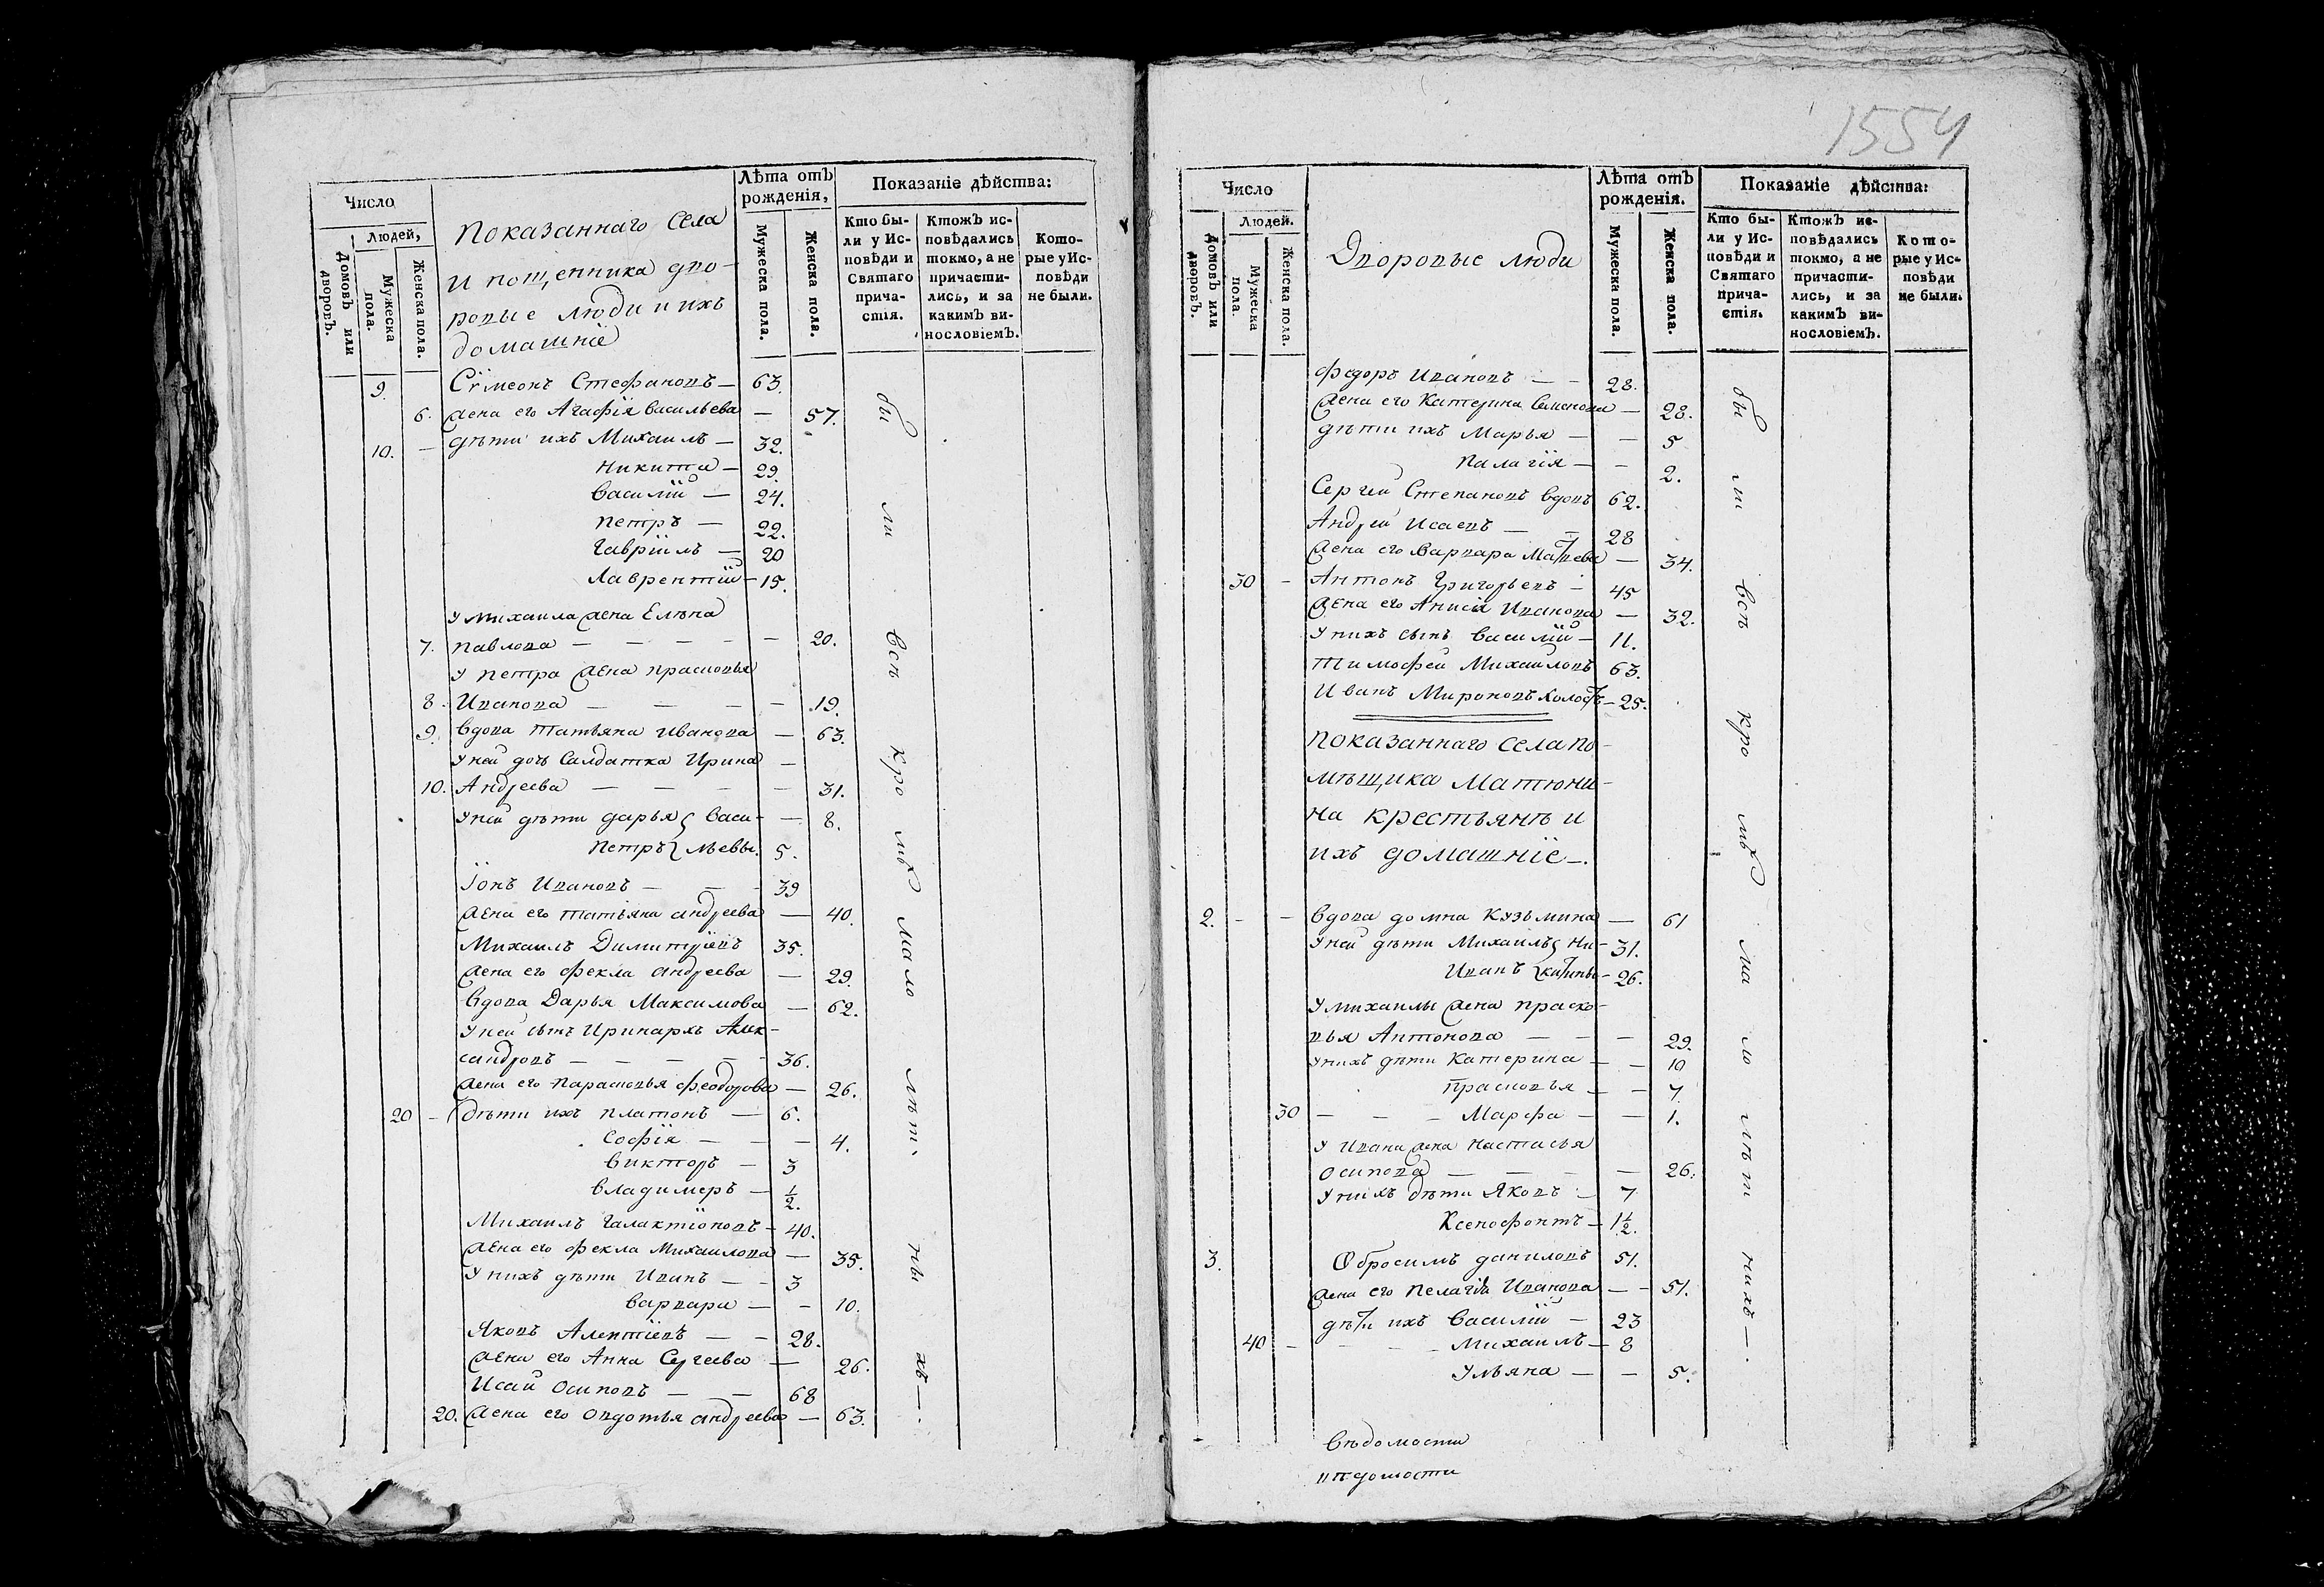 Число
Людей,
Домовъ или дворовъ.
Мужеска пола.
Женска пола.
Показаннаго Села
и пошенника дво-
ровые люди и ихъ
домашніе
Лѣта отъ рожденія,
Мужеска пола.
Женска пола.
Показаніе дѣйства:
Кто бы-
ли у Ис-
повѣди и
Святаго
прича-
стія.
Ктожъ ис-
повѣдались
токмо, а не
причасти-
лись, и за
какимъ ви-
нословіемъ.
Кото-
рые у Ис-
повѣди
не были.
9. Сѵмеонъ Стефановъ — 63.
6. жена его Агафія Васильева — 57.
10. — дѣти ихъ Михаилъ — 32.
Никита — 29.
Василій — 24.
Петръ — 22.
Гавріилъ — 20
Лаврентій — 15.
У михаила жена Елѣна
7. павлова — — — — — 20.
У петра жена прасковья
8. Иванова — — — — 19.
9. Вдова татьяна Иванова — 63.
У ней дочь Салдатка Ирина —
10. Андреева — — — — 31.
У ней дѣти дарья Васи- — 8.
Петръ льевы. 5.
Іонъ Ивановъ — — — 39
жена его татьяна андреева — 40.
Михаилъ Димитріевъ 35.
жена его Фекла андреева — 29.
Вдова Дарья Максимова — 62.
У ней сынъ Иринархъ Алек-
сандровъ — — — — 36.
жена его Парасковья Феодорова — 26.
20 — дѣти ихъ платонъ — 6.
Софія — — — 4.
Викторъ — 3
Владимеръ — 1/2.
Михаилъ Галактіоновъ — 40.
жена его Фекла Михаилова — 35.
У нихъ дѣти Иванъ — — 3
Варвара — — 10.
Яковъ Алентіевъ — — 28.
жена его Анна Сергеева — 26.
Исай Осиповъ — — 68
20. жена его Овдотья андреева — 63.
бы ли всѣ кро мѣ мало лѣт ны хъ —.
1554
Число
Людей.
Домовъ или дворовъ.
Мужеска пола.
Женска пола.
Дворовые люди
Лѣта отъ рожденія.
Мужеска пола.
Женска пола.
Показаніе дѣйства:
Кто бы-
ли у Ис-
повѣди и
Святаго
прича-
стія.
Ктожъ ис-
повѣдались
токмо, а не
причасти-
лись, и за
какимъ ви-
нословіемъ.
Кото-
рые у Ис-
повѣди
не были.
Федоръ Ивановъ — — 28.
жена его Катерина Семенова — 28.
дѣти ихъ Марья — — 5
Палагія — — 2.
Сергей Степановъ вдовъ 62.
Андрей Исаевъ — — 28
жена его Варвара Матвева — 34.
30 — Антонъ Григорьевъ — 45
жена его Анисія Иванова — 32.
У нихъ сынъ Василій — 11.
Тимофей Михаиловъ 63.
Иванъ Мироновъ холостъ — 25.
показаннаго села по-
мѣщика Матюни-
на крестьянѣ и
ихъ домашніе —.
2. — — Вдова домна Кузьмина — 61
У ней дѣти Михаилъ Ни- — 31.
Иванъ китины — 26.
У михаилы жена праско-
вья Антонова — — — 29.
У нихъ дѣти Катерина — — 10
Прасковья — — 7.
30 — — — Марфа — — 1.
У Ивана жена Настасья
Осипова — — — — 26.
У нихъ дѣти Яковъ — 7
Ксенофонтъ — 1 1/2.
3. Обросимъ даниловъ 51.
жена его пелагія Иванова — — 51.
дѣти ихъ Василій — 23
40 — — — — Михаилъ — 8
Ульяна — — 5.
бы ли всѣ кро мѣ ма ло лѣт нихъ —.
Вѣдомости